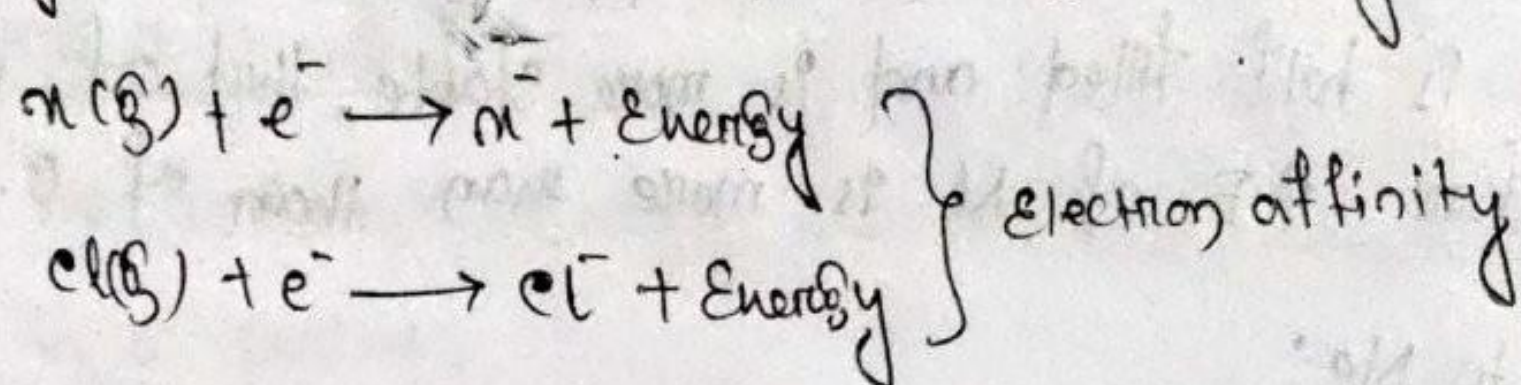 x(g) + e⁻ → x⁻ + Energy
Cl(g) + e⁻ → Cl⁻ + Energy
} Electron affinity